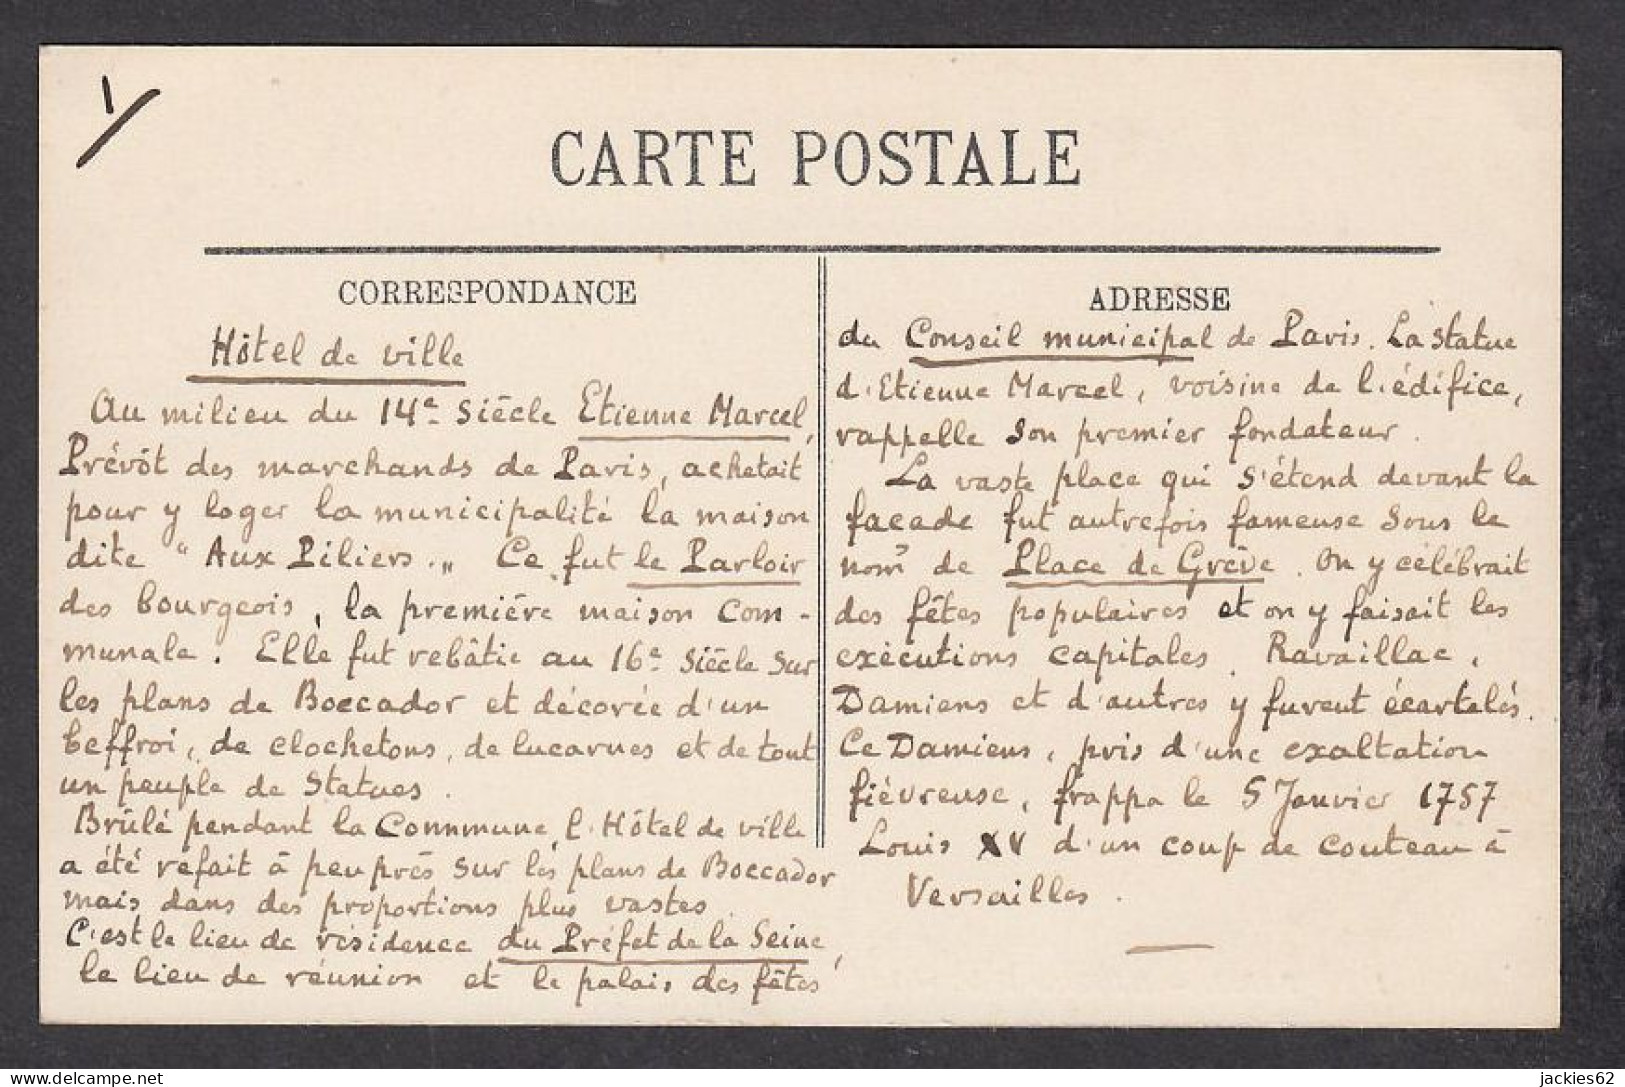 1/
CARTE POSTALE
CORRESPONDANCE
Hôtel de ville
Au milieu du 14e siècle Etienne Marcel,
Prévôt des marchands de Paris, achetait
pour y loger la municipalité la maison
dite "Aux Piliers." Ce fut le Parloir
des bourgeois, la première maison com-
munale. Elle fut rebâtie au 16e siècle sur
les plans de Boccador et décorée d'un
beffroi, de clochetons, de lucarnes et de tout
un peuple de statues.
Brûlé pendant la Commune, l'Hôtel de ville
a été refait à peu près sur les plans de Boccador
mais dans des proportions plus vastes.
C'est le lieu de résidence du Préfet de la Seine,
le lieu de réunion et le palais des fêtes
ADRESSE
du Conseil municipal de Paris. La statue
d'Etienne Marcel, voisine de l'édifice,
rappelle son premier fondateur.
La vaste place qui s'étend devant la
facade fut autrefois fameuse sous le
nom de Place de Grève. On y célébrait
des fêtes populaires et on y faisait les
exécutions capitales. Ravaillac,
Damiens et d'autres y furent écartelés.
Ce Damiens, pris d'une exaltation
fiévreuse, frappa le 5 Janvier 1757
Louis XV d'un coup de couteau à
Versailles.
delcampe.net
jackies62